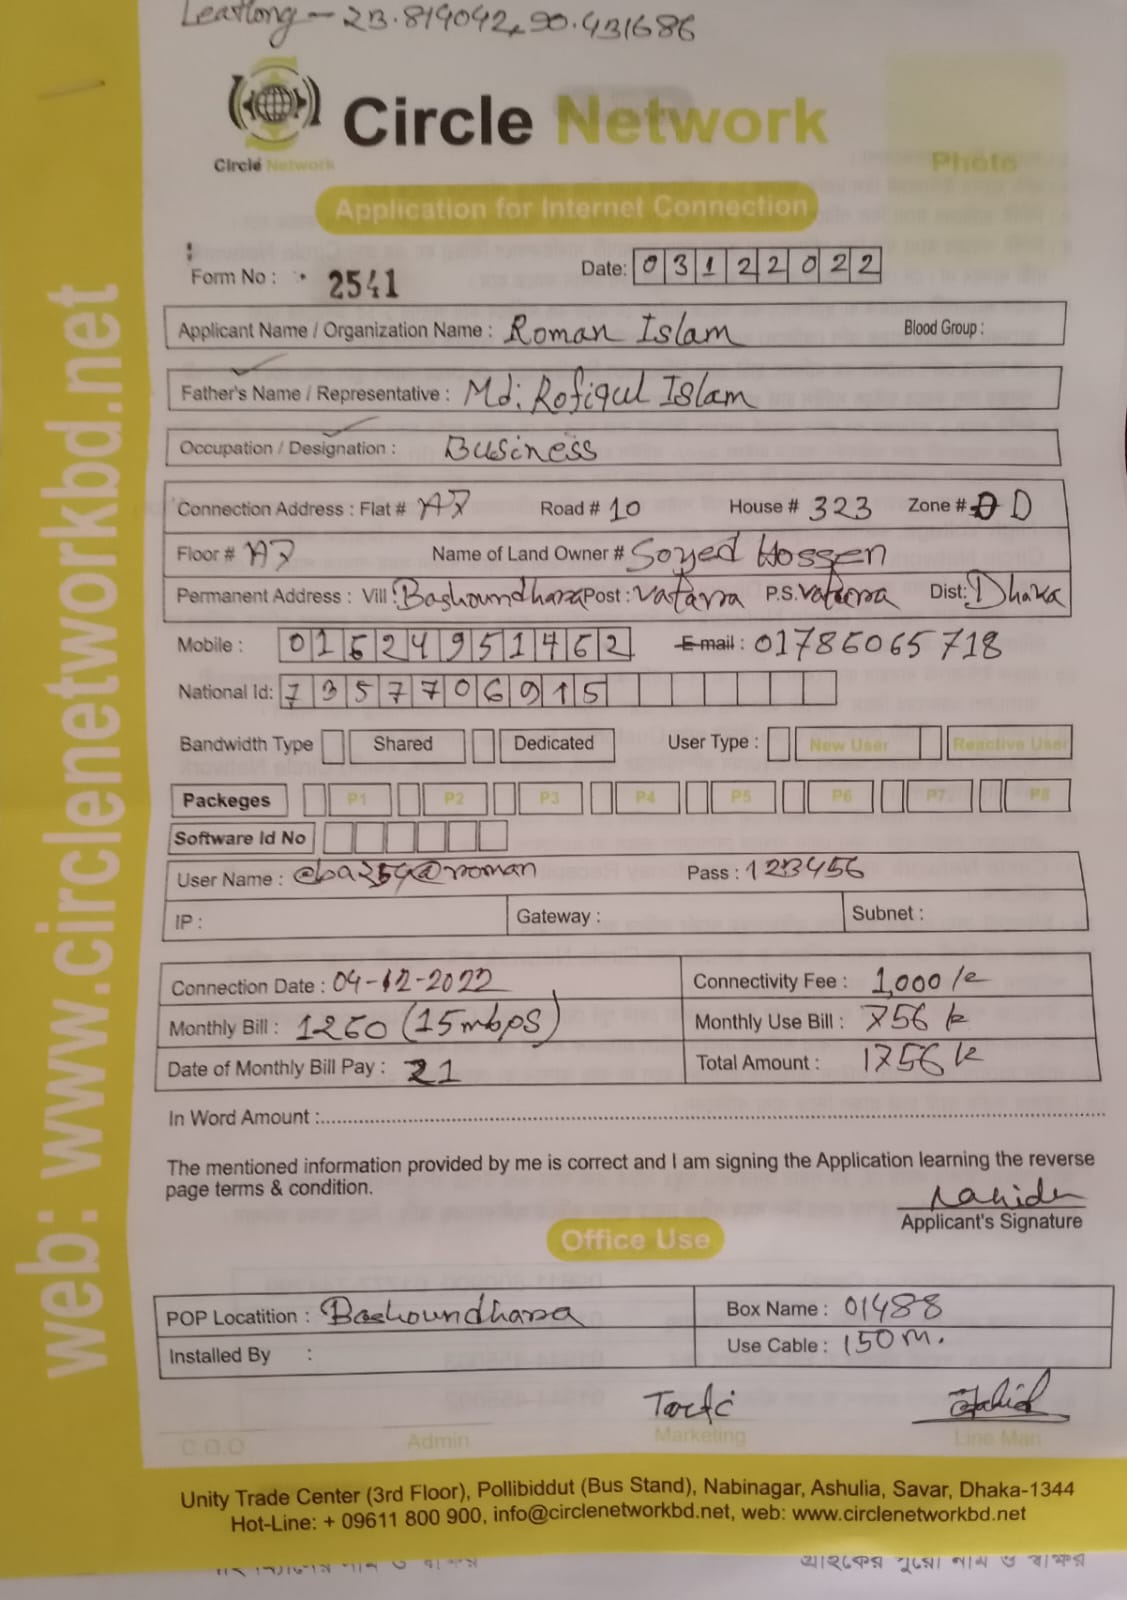 Leatlong - 23.814042,90.431686
Circle Network
Circle Network
Photo
Application for Internet Connection
Form No : 2541 Date: 03122022
Applicant Name / Organization Name : Roman Islam Blood Group :
Father's Name / Representative : Md: Rofiqul Islam
Occupation / Designation : Business
Connection Address : Flat # A7 Road # 10 House # 323 Zone # D
Floor # A7 Name of Land Owner # Soyed Hossen
Permanent Address : Vill : Bashoundhara Post : vatara P.S. vatara Dist: Dhaka
Mobile : 01624951462 E-mail : 01786065718
National Id: 7357706915
Bandwidth Type Shared Dedicated User Type : New User Reactive User
Packeges P1 P2 P3 P4 P5 P6 P7 P8
Software Id No
User Name : Pass : 123456
IP : Gateway : Subnet :
Connection Date : 04-12-2022 Connectivity Fee : 1,000/k
Monthly Bill : 1260 (15mbps) Monthly Use Bill : 756 k
Date of Monthly Bill Pay : 21 Total Amount : 1756 k
In Word Amount :
The mentioned information provided by me is correct and I am signing the Application learning the reverse
page terms & condition.
Applicant's Signature
Office Use
POP Locatition : Bashoundhara Box Name : 01488
Installed By : Use Cable : 150 m.
C.O.O Admin Marketing Line Man
Unity Trade Center (3rd Floor), Pollibiddut (Bus Stand), Nabinagar, Ashulia, Savar, Dhaka-1344
Hot-Line: + 09611 800 900, info@circlenetworkbd.net, web: www.circlenetworkbd.net
web: www.circlenetworkbd.net